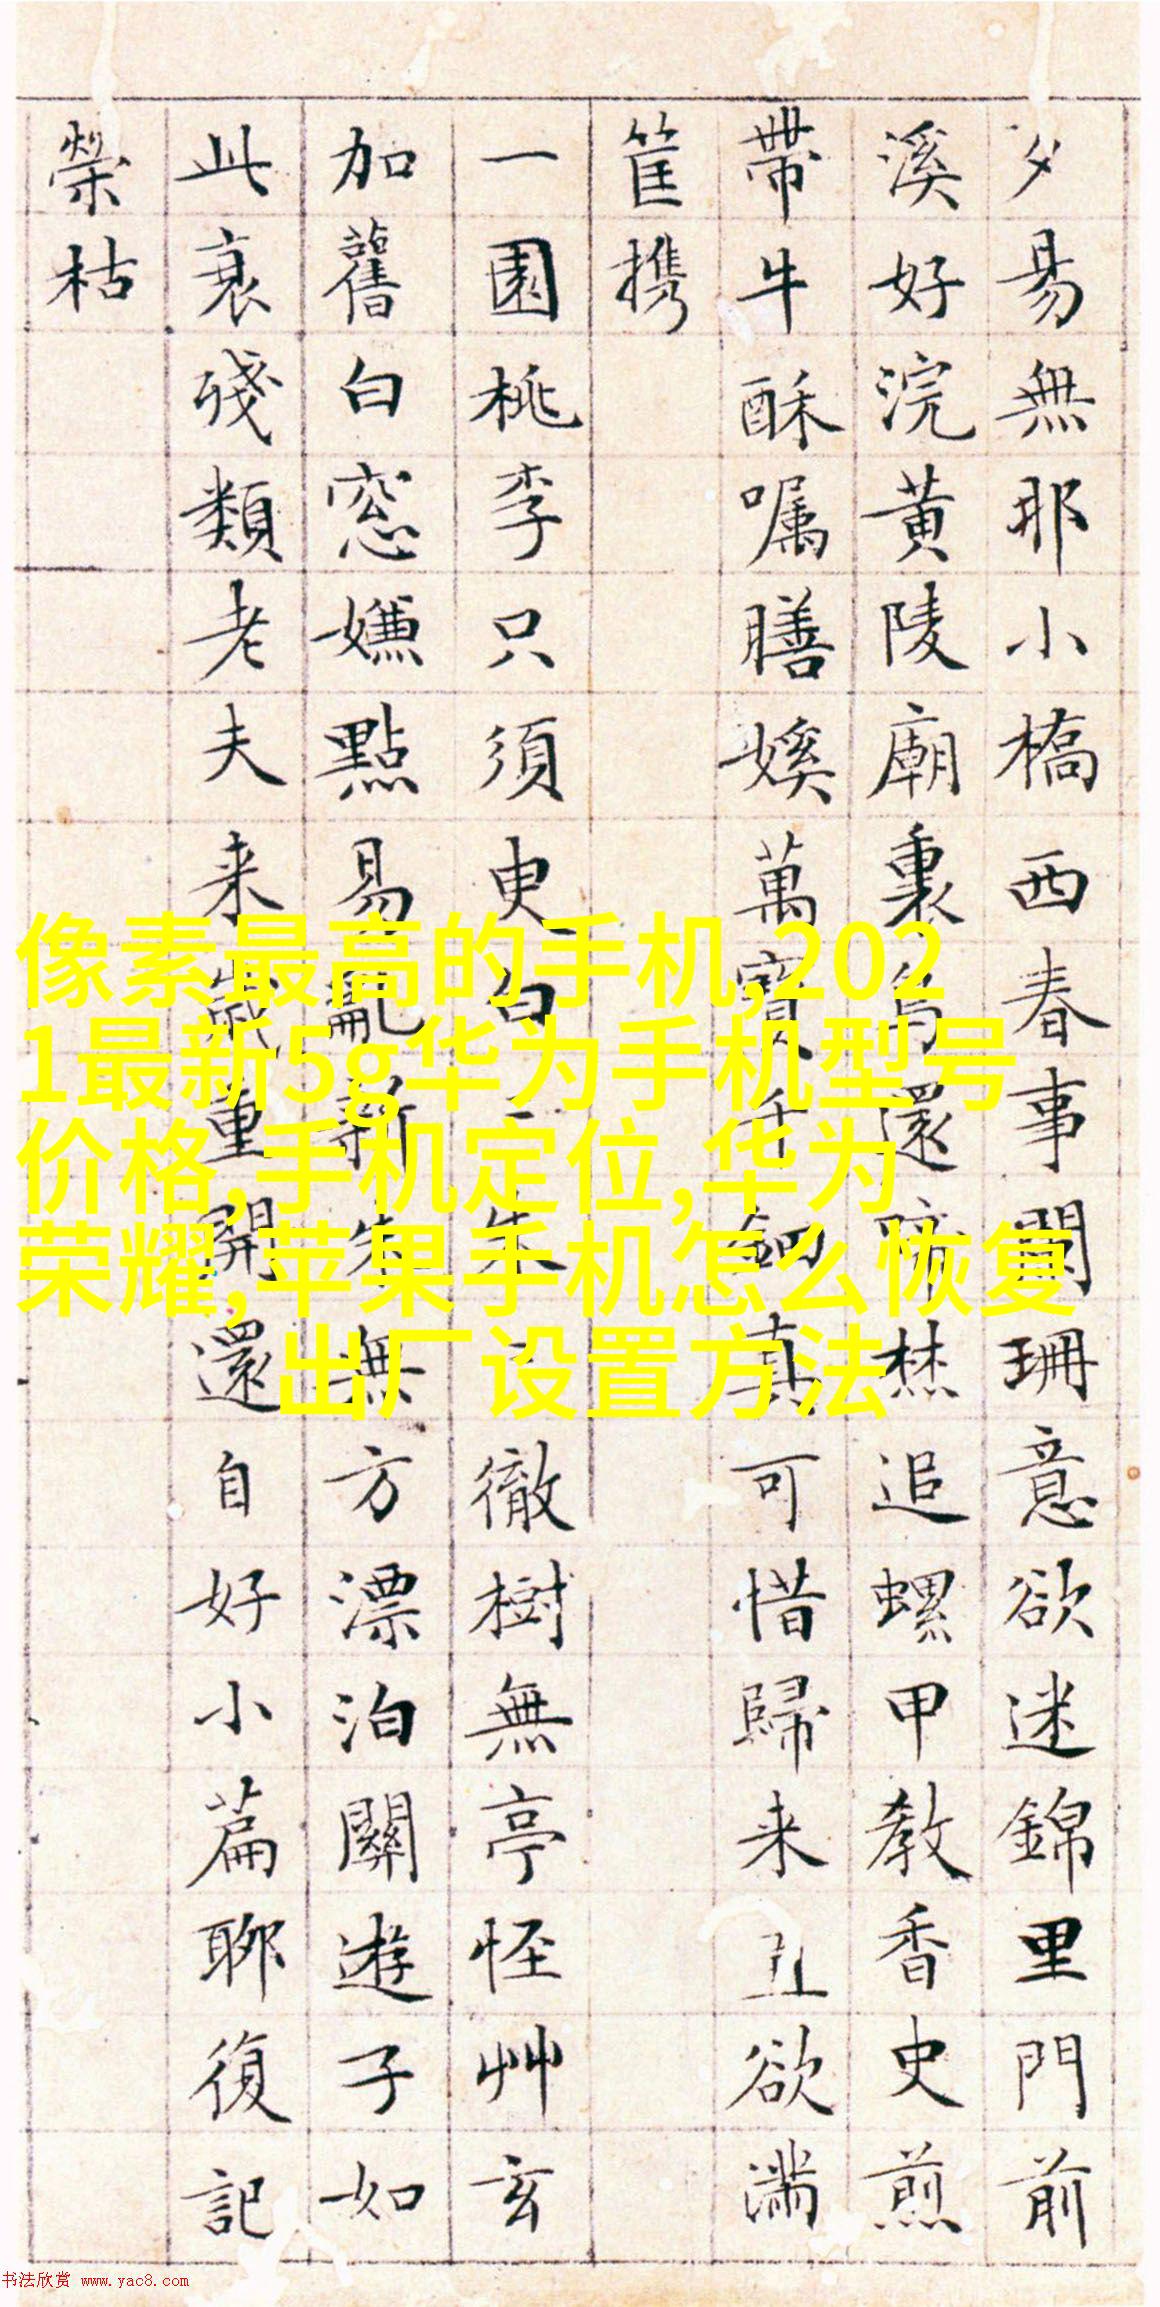 夕易無耶小橋西春事闌珊意欲迷錦里門前
溪好浣黃陵廟裏鳥還啼焚追螺甲教香史煎
帶牛酥嘱膳㜎萬寶千鈿真可惜歸来欲滿
筐携
一園桃李只須臾白〻朱〻徹樹無亭怪艸玄
加舊白窓嫌點易亂新朱無方漂泊關遊子如
此衰殘類老夫来歲重開還自好小篇聊復記
榮枯
像素最高的手机,202
1最新5g华为手机型号
价格,手机定位,华为
荣耀,苹果手机怎么恢复
出厂设置方法
书法欣赏 www.yac8.com